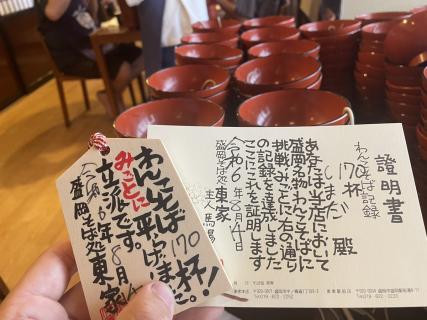 證明書
わんこそば記録
170杯
いまだ 殿
あなたは当店において
盛岡名物わんこそばに
挑戦みごとに右の通り
の記録を達成しました
ここにこれを証明します
令和6年8月4日
盛岡そば処 東家
わんこそば170
みごとに平らげました。
立派です。杯！
令和6年8月
盛岡そば処
東家